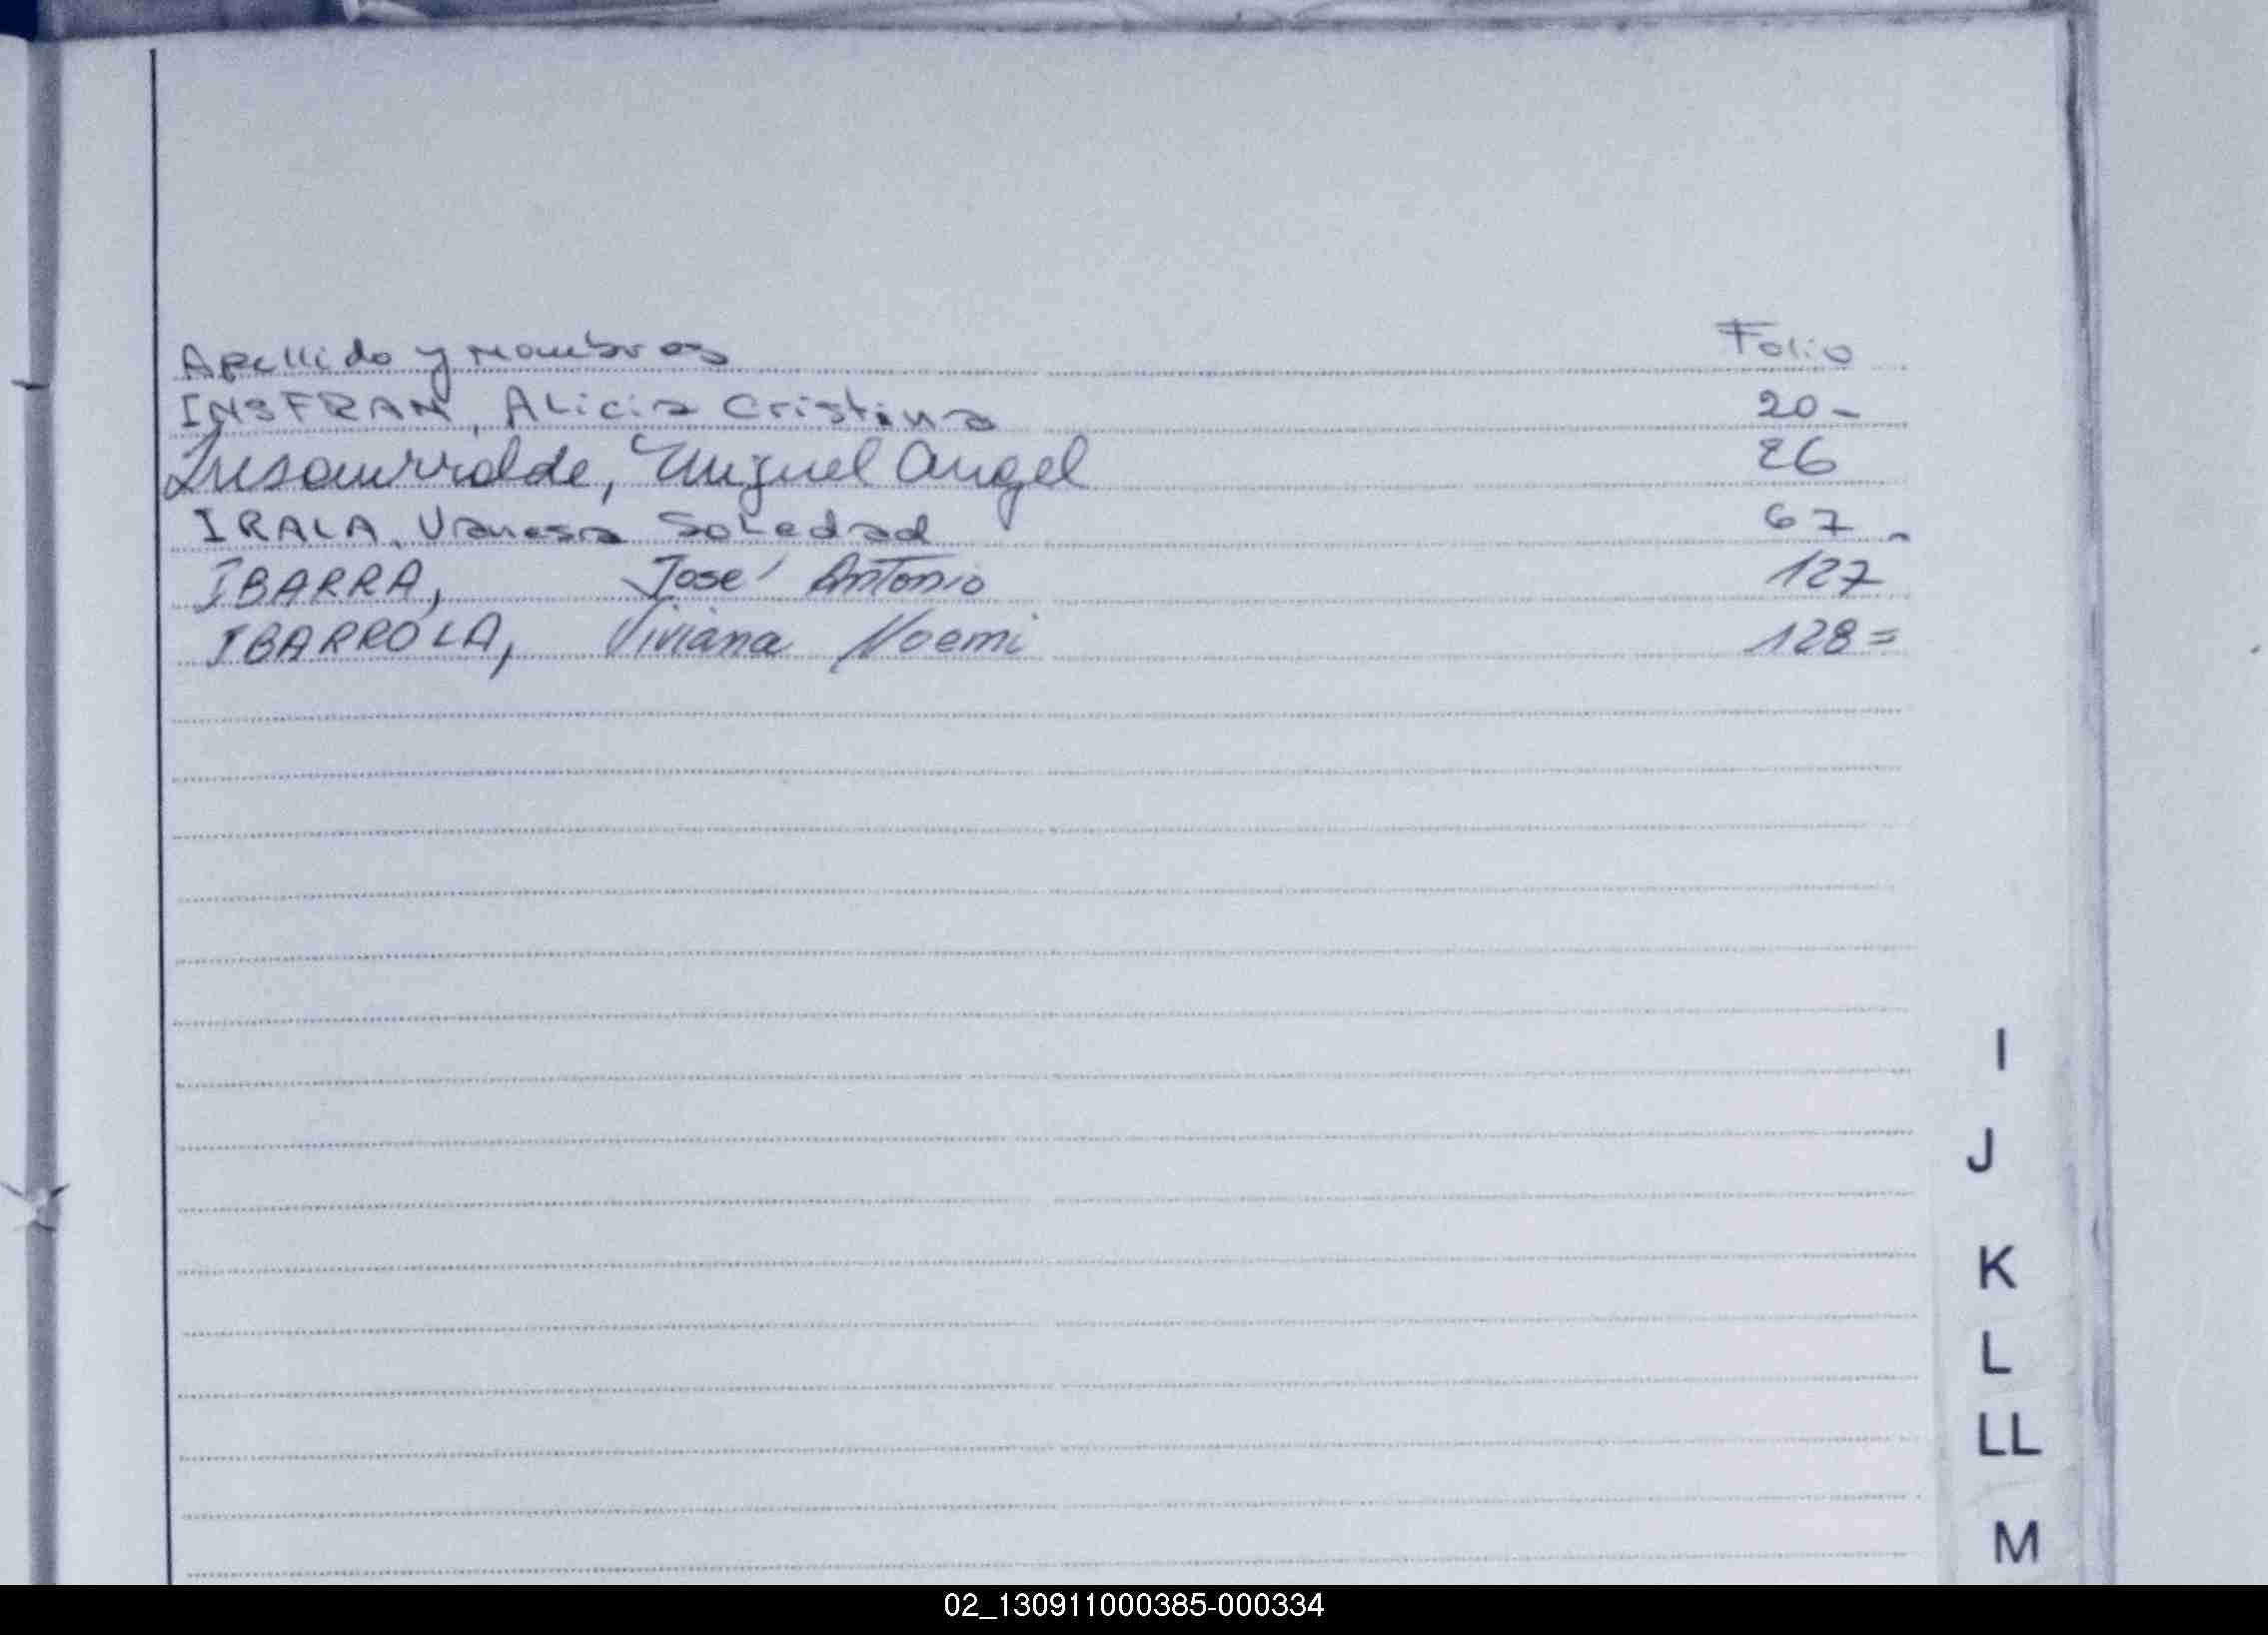 Apellido y Nombres Folio
INSFRAN, Alicia Cristina 20-
Insaurralde, Miguel Angel 26
IRALA, Vanesa Soledad 67-
IBARRA, José Antonio 127
IBARROLA, Viviana Noemi 128=
I
J
K
L
LL
M
02_130911000385-000334